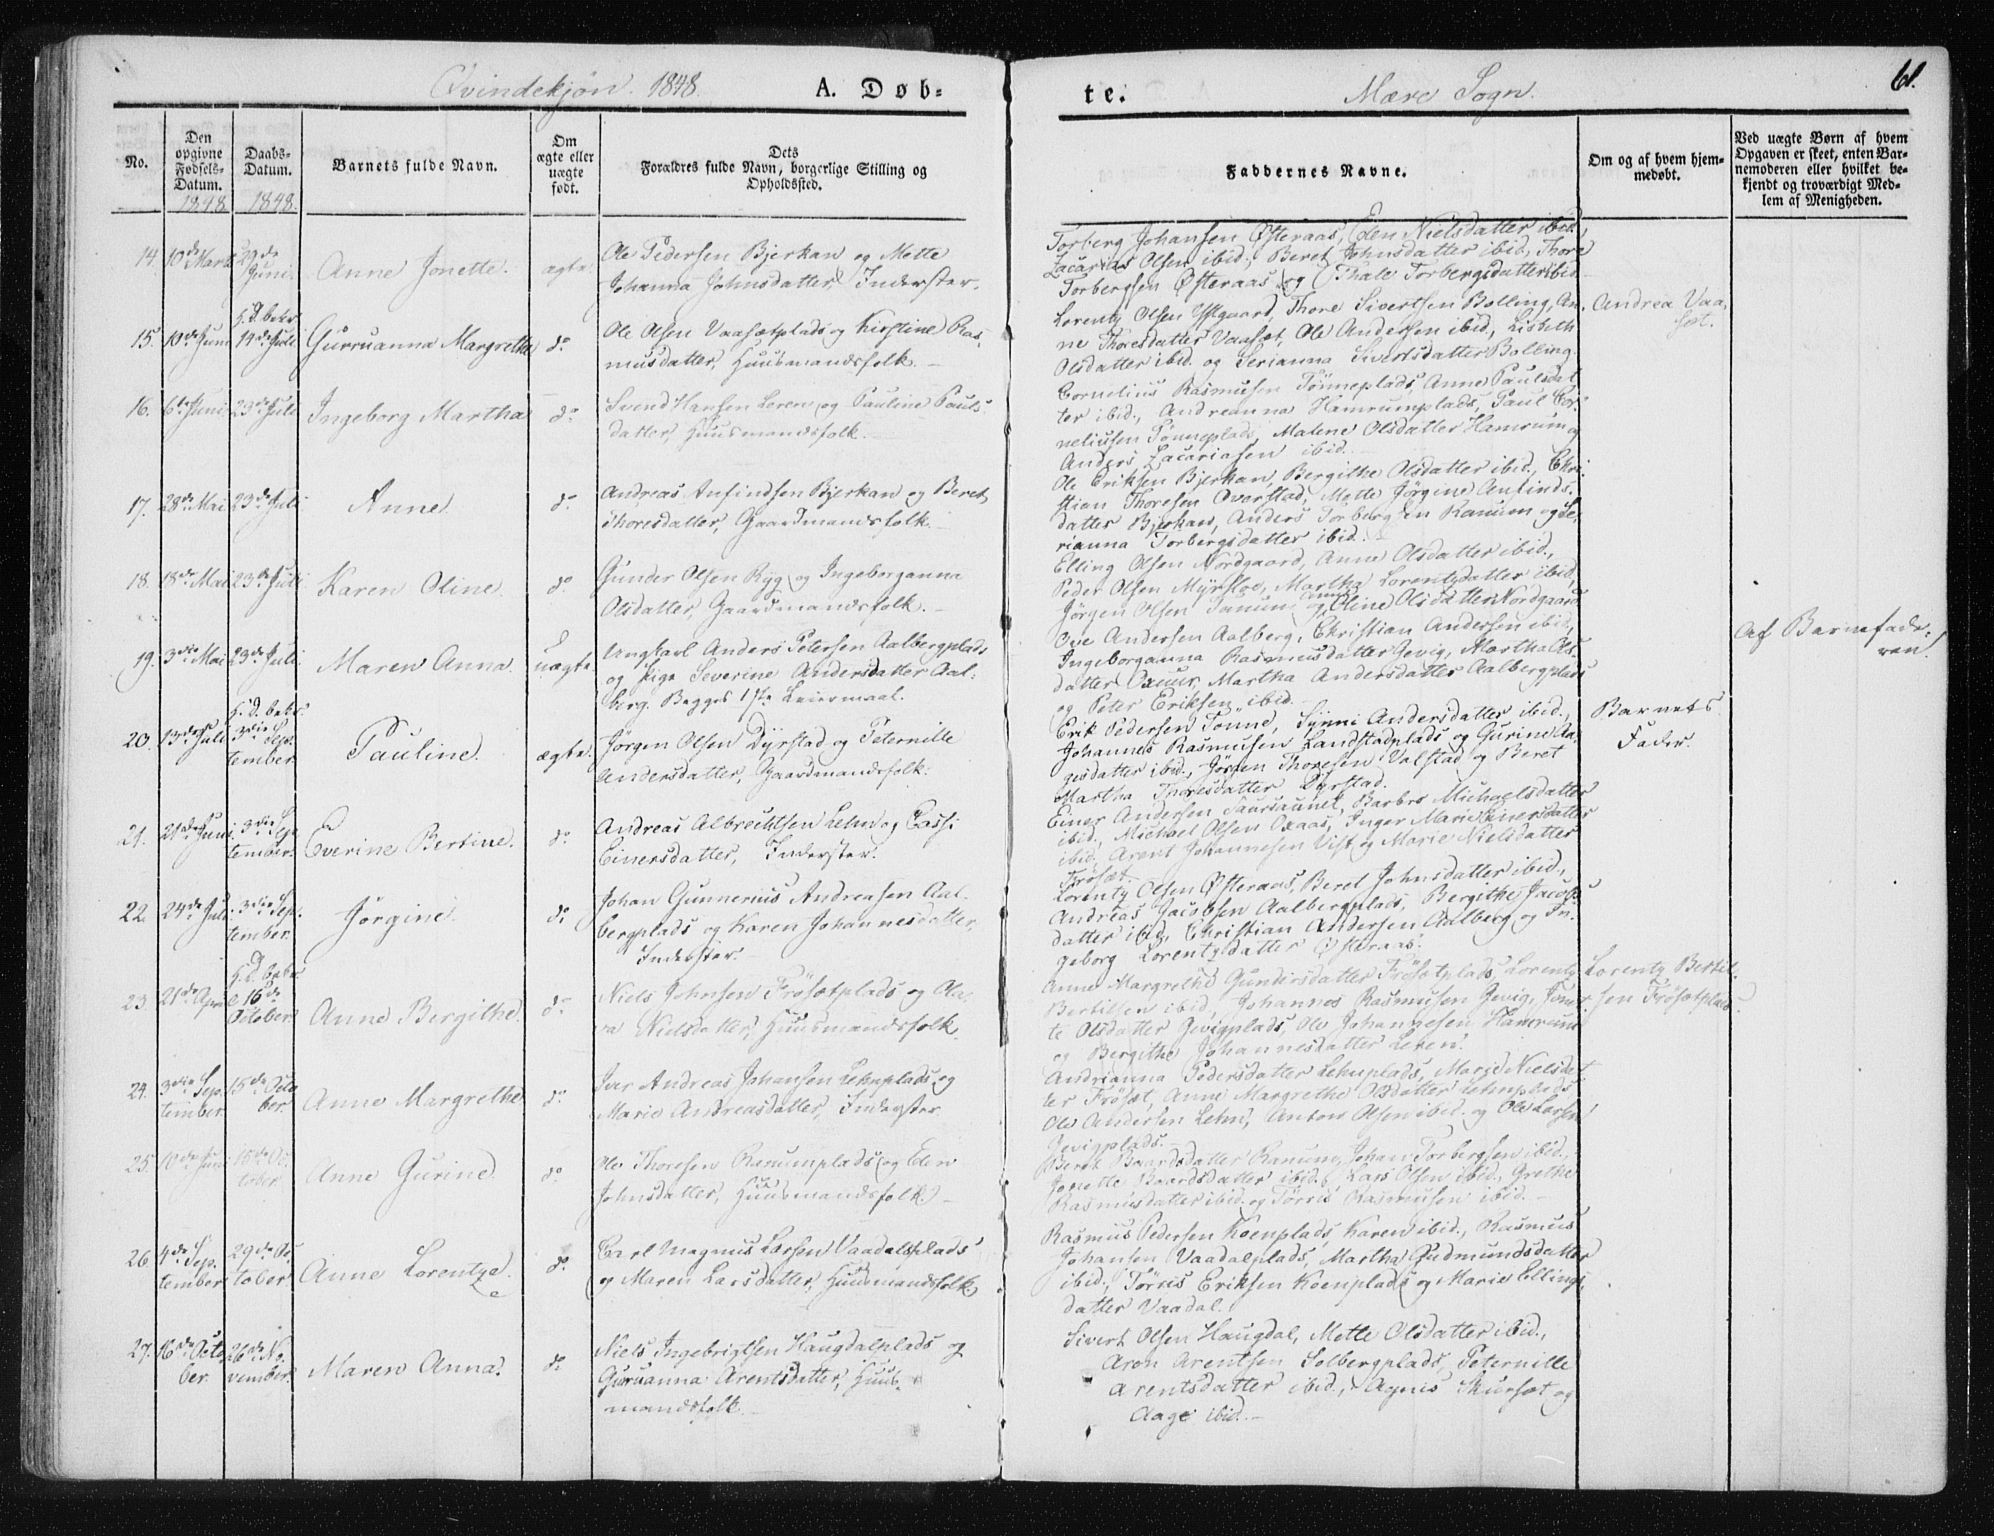 Qvindekjøn. 1848.
A. Døb=
te.
Mære Sogn.
61.
No.
Den opgivne Fødsels-Datum.
Daabs-Datum.
Barnets fulde Navn.
Om ægte eller uægte født.
Dets
Forældres fulde Navn, borgerlige Stilling og
Opholdssted.
Faddernes Navne.
Om og af hvem hjem-
medøbt.
Ved uægte Børn af hvem
Opgaven er skeet, enten Bar-
nemoderen eller hvilket be-
kjendt og troværdigt Med-
lem af Menigheden.
1848
1848.
14. 10de Marts 29de Juni Anne Jonette. ægte.
Ole Pedersen Bjerkan og Mette
Johanna Johnsdatter Inderster.
Torberg Johansen Østeraas, Elen Nielsdatter ibid.,
Zacarias Olsen ibid., Beret Johnsdatter ibid., Thore
Torbergsen Østeraas og Thale Torbergsdatter ibid.
15. 10de Juni H. d. bekr. 14de Juli Gurruanna Margrethe do
Ole Olsen Vaasætplads og Kirstine Ras-
musdatter, Huusmandsfolk.
Lorentz Olsen Ystgaard, Thore Sivertsen Bolling, An-
ne Thoresdatter Vaasæt, Ole Andersen ibid., Lisbeth
Olsdatter ibid. og Serianna Sivertsdatter Bolling.
Andrea Vaa-
sæt.
16. 6te Juni 23de Juli Ingeborg Martha do
Svend Hansen Leren og Pauline Pauls-
datter, Huusmandsfolk.
Cornelius Rasmusen Tønneplads, Anne Paulsdat-
ter ibid., Andreanna Hamrumplads, Paul Cor-
neliusen Tønneplads, Malene Olsdatter Hamrum og
Anders Zacariasen ibid.
17. 28de Mai 23de Juli Anne do
Andreas Anfindsen Bjerkan og Beret
Thoresdatter, Gaardmandsfolk.
Ole Eriksen Bjerkan, Bergithe Olsdatter ibid., Chri-
stian Thoresen Overstad, Mette Jørgine Anfinds-
datter Bjerkan, Anders Torbergsen Ranum og Se-
rianna Torbergsdatter ibid.
18. 18de Mai 23de Juli Karen Oline do
Gunder Olsen Ryg og Ingeborganna
Olsdatter, Gaardmandsfolk.
Elling Olsen Nordgaard, Anne Olsdatter ibid.,
Peder Olsen Myrsloe, Martha Lorentzdatter ibid.,
Jørgen Olsen Tanum og Oline Olsdatter Nordgaard
19. 3die Mai 23de Juli Maren Anna. uægte.
Ungkarl Anders Petersen Aalbergplads
og Pige Severine Andersdatter Aal-
berg. Begges 1ste Leiermaal.
Ove Andersen Aalberg, Christian Andersen ibid.,
Ingeborganna Rasmusdatter Gevig, Martha Ols-
datter Oxuur, Martha Andersdatter Aalbergplads
og Peter Eriksen ibid.
Af Barnefade-
ren.
20. 13de Juli H. d. bekr. 3die September. Pauline. ægte.
Jørgen Olsen Dyrstad og Peternille
Andersdatter, Gaardmandsfolk.
Erik Pedersen Tønne, Synni Andersdatter ibid.,
Johannes Rasmusen Landstadplads og Gurine Aa-
gesdatter ibid., Jørgen Thoresen Valstad og Beret
Martha Thoresdatter Dyrstad.
Barnets
Fader.
21. 21de Juni 3die September. Everine Bertine. do
Andreas Albrechtsen Lehn og Cassi
Einersdatter, Inderster.
Einer Andersen Saursaunet, Barbro Michaelsdatter
ibid., Michael Olsen Oxaas, Inger Marie Einersdatter
ibid., Arent Johannesen Vist og Marie Nielsdatter
Frøsæt.
22. 24de Juli 3die September. Jørgine do
Johan Gunnerius Andreasen Aal-
bergplads og Karen Johannesdatter,
Inderster.
Lorentz Olsen Østeraas, Beret Johnsdatter ibid.,
Andreas Jacobsen Aalbergplads, Bergithe Jacobs-
datter ibid., Christian Andersen Aalberg og In-
geborg Lorentzdatter Østeraas.
23. 21de April H. d. bekr. 15de October. Anne Bergithe. do
Niels Johnsen Frøsætplads og Ola-
va Nielsdatter, Huusmandsfolk.
Anne Margrethe Gundersdatter Frøsætplads, Lorentz
Bertilsen ibid., Johannes Rasmusen Gevig, Jonet-
te Olsdatter Gevigplads, Ole Johannesen Hamrum
og Bergithe Johannesdatter Leren.
Lorentz Bertil-
sen Frøsætplads.
24. 3die September. 15de October. Anne Margrethe do
Iver Andreas Johansen Lehnplads og
Marie Andreasdatter, Inderster.
Andrianna Pedersdatter Lehnplads, Marie Nielsdat-
ter Frøsæt, Anne Margrethe Olsdatter Lehnplads
Ole Andersen Lehn, Anton Olsen ibid. og Ole Larsen
Gevigplads.
25. 10de Juni 15de October. Anne Gurine do
Ole Thoresen Ranumplads og Elen
Johnsdatter, Huusmandsfolk.
Beret Baardsdatter Ranum, Johan Torbergsen ibid.,
Jonette Baardsdatter ibid., Lars Olsen ibid., Grethe
Rasmusdatter ibid. og Tørris Rasmusen ibid.
26. 4de September 29de October Anne Lorentze. do
Carl Magnus Larsen Vaadalsplads
og Maren Larsdatter, Huusmandsfolk.
Rasmus Pedersen Koenplads, Karen ibid., Rasmus
Johansen Vaadalplads, Martha Gudmundsdatter
ibid., Tørris Eriksen Koenplads og Marie Ellings-
datter Vaadal.
27. 16de October. 26de November. Maren Anna. do
Niels Ingebrigtsen Haugdalplads og
Guruanna Arentsdatter, Huus-
mandsfolk.
Sivert Olsen Haugdal, Mette Olsdatter ibid.,
Aron Arentsen Solbergplads, Peternille
Arentsdatter ibid., Agnis Skursæt og
Aage ibid.